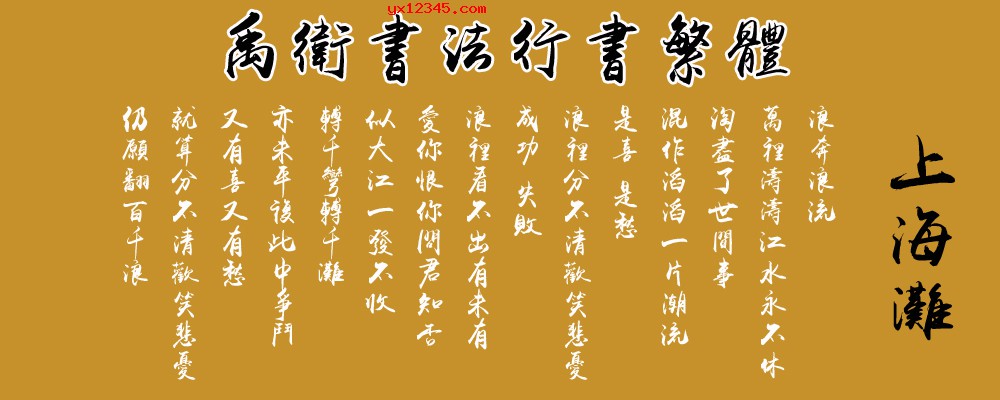 yx12345.com
禹衛書法行書繁體
上海灘
浪奔浪流
萬裡濤濤江水永不休
淘盡了世間事
混作滔滔一片潮流
是喜 是愁
浪裡分不清歡笑悲憂
成功 失敗
浪裡看不出有未有
愛你恨你問君知否
似大江一發不收
轉千彎轉千灘
亦未平復此中爭鬥
又有喜又有愁
就算分不清歡笑悲憂
仍願翻百千浪